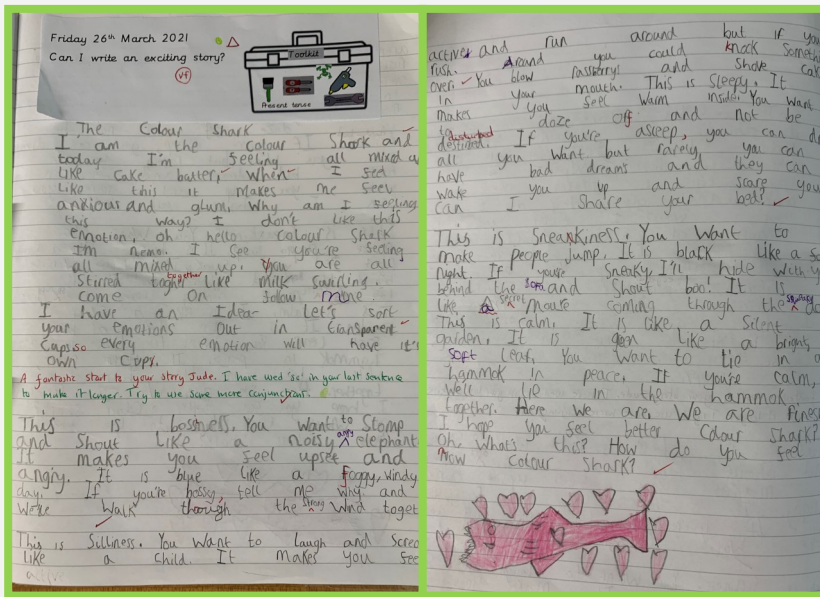 Friday 26th March 2021
Can I write an exciting story?
vf
Toolkit
Present tense
The Colour Shark
I am the colour Shark and
today I'm feeling all mixed
like cake batter, When I feel
like this it makes me feel
anxious and glum, Why am I feeling
this way? I don't like this
emotion, oh hello colour Shark
I'm nemo. I see you're feeling
all mixed up. You are all
Stirred together like milk swirling.
come on follow mine.
I have an Idea- Let's sort
your emotions out in transparent
cups so every emotion will have it's
own cups.
A fantastic start to your story Jude. I have used 'so' in your last sentence
to make it longer. Try to use some more conjunctions.
This is bossness. You want to Stomp
and Shout like a noisy angry elephant
It makes you feel upset and
angry. It is blue like a foggy, windy
day. If you're bossy, tell me why and
we'll Walk through the strong wind
This is Silliness. You Want to laugh and
like a child. It makes you
active and run around but if
rush. Around you could knock
over. You blow rassberrys and shove
in your mouth. This is Sleepy. It
makes you feel warm inside. You want
to doze off and not be
disturbed. If you're asleep, you can
all you want but rarely you can
have bad dreams and they can
wake you up and scare you
can I share your bed?
This is Sneakiness. You Want to
make people jump. It is black like a
night. If you're Sneaky I'll hide with
behind the sofa and Shout boo! It is
like a secret mouse coming through the
This is calm, It is like a silent
garden, It is like a bright,
soft leaf, You Want to lie in a
hammok in peace. If you're calm,
we'll lie in the hammok
together. Here we are, We are
I hope you feel better Colour Shark?
Oh what's this? How do you feel
Now Colour Shark?